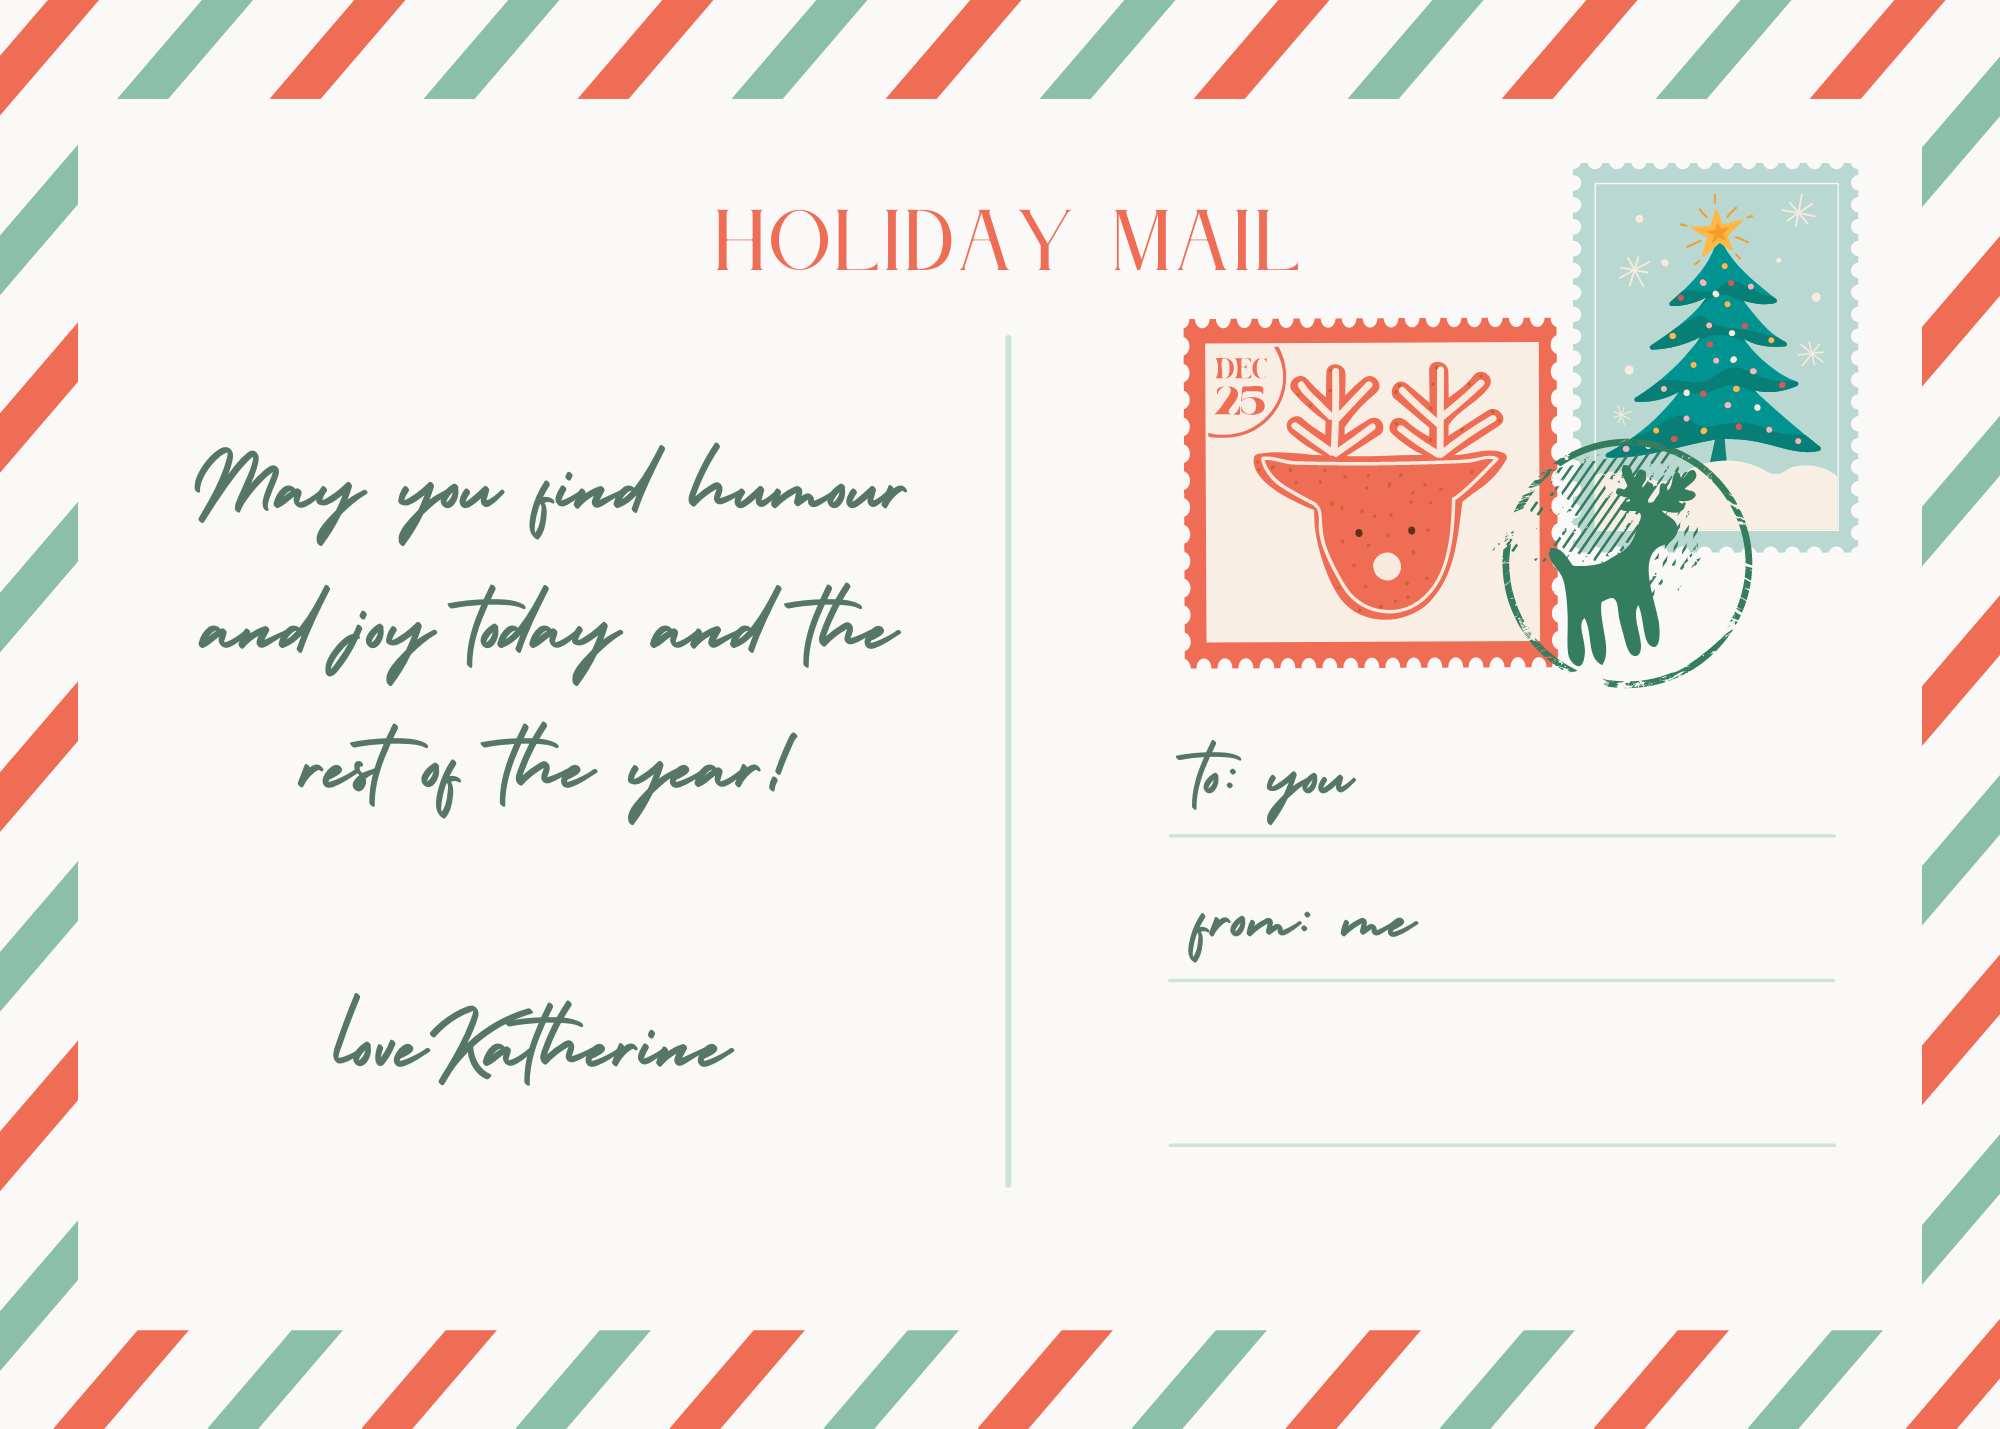 HOLIDAY MAIL
May you find humour
and joy today and the
rest of the year!
love Katherine
DEC
25
to: you
from: me